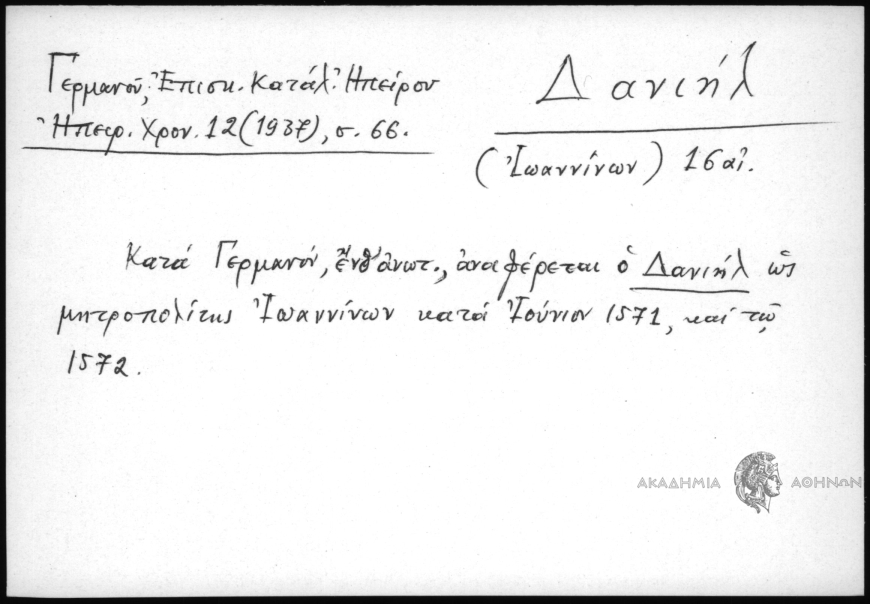 Γερμανοῦ, Ἐπισκ. Κατάλ. Ἠπείρου
Ἠπειρ. Χρον. 12 (1937), σ. 66.
Δανιήλ
(Ἰωαννίνων) 16 αἰ.
Κατά Γερμανόν, ἔνθ' ἀνωτ., ἀναφέρεται ὁ Δανιήλ ὡς
μητροπολίτης Ἰωαννίνων κατά Ἰούνιον 1571, καί τῷ
1572.
ΑΚΑΔΗΜΙΑ ΑΘΗΝΩΝ